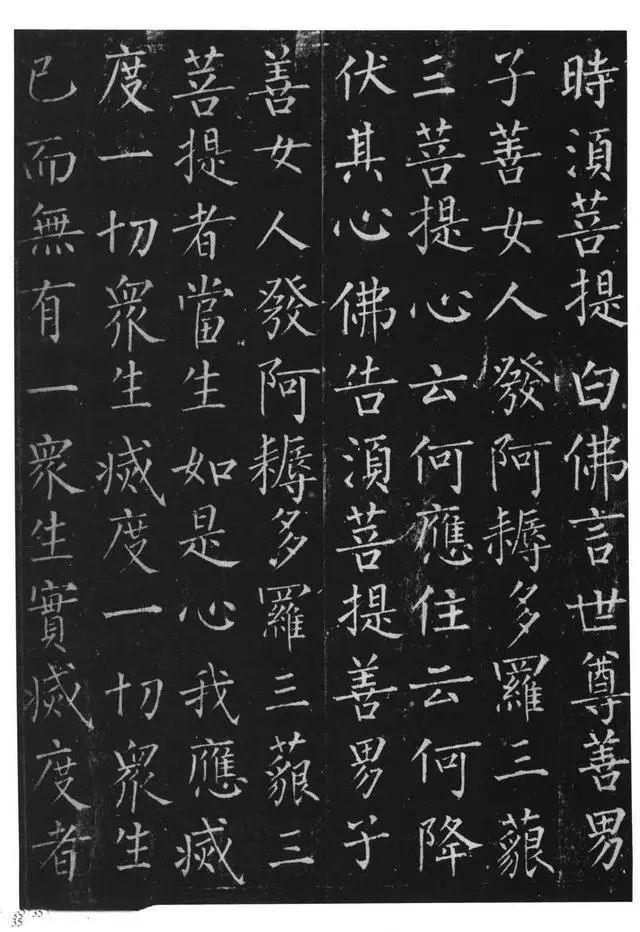 時湏菩提白佛言世尊善男
子善女人發阿耨多羅三藐
三菩提心云何應住云何降
伏其心佛告湏菩提善男子
善女人發阿耨多羅三藐三
菩提者當生如是心我應滅
度一切衆生滅度一切衆生
已而無有一衆生實滅度者
35
35